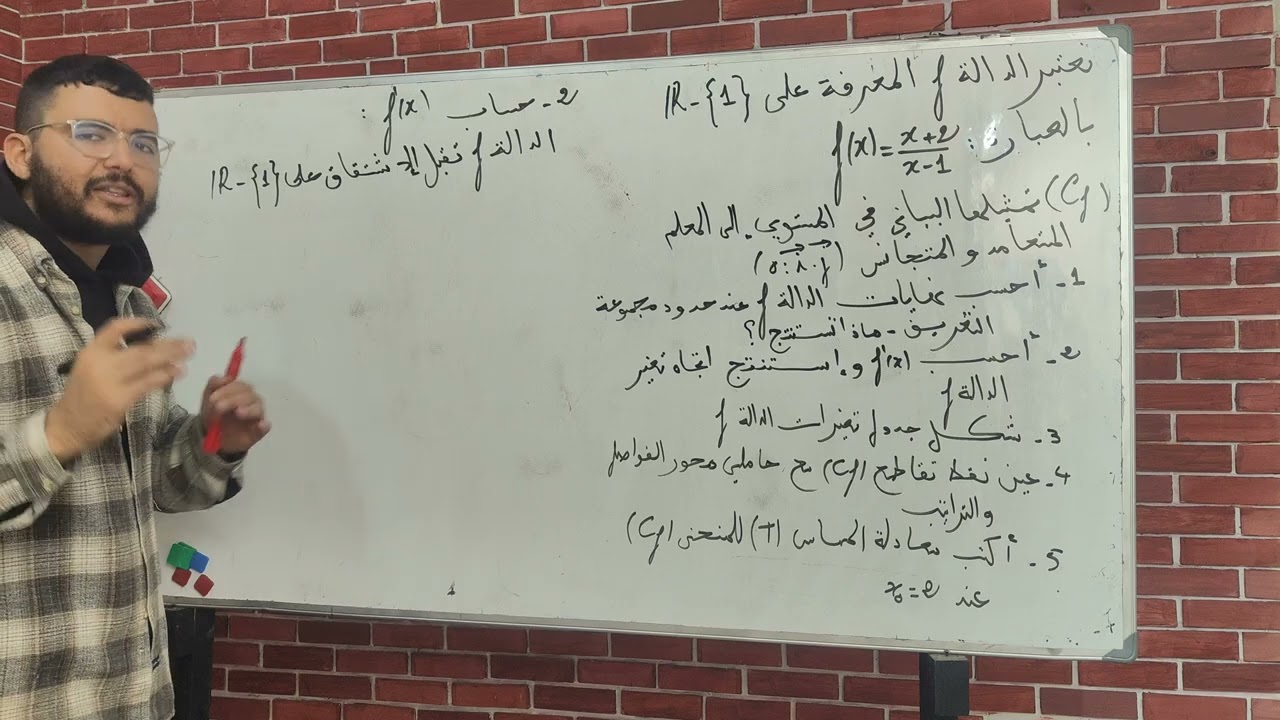 نعتبر الدالة f المعرفة على IR-{1}
بالعبارة: f(x)=\frac{x+2}{x-1}
(Cf) تمثيلها البياني في المستوي إلى المعلم
المتعامد و المتجانس (o;i;j)
1- أحسب نهايات الدالة f عند حدود مجموعة
التعريف - ماذا تستنتج؟
2- أحسب f'(x) و استنتج اتجاه تغير
الدالة f
3- شكل جدول تغيرات الدالة f
4- عين نقط تقاطع (Cf) مع حاملي محور الفواصل
والتراتيب
5- أكتب معادلة المماس (T) للمنحنى (Cf)
عند x₀=2
2- حساب f'(x) :
الدالة f تقبل الاشتقاق على IR-{1}